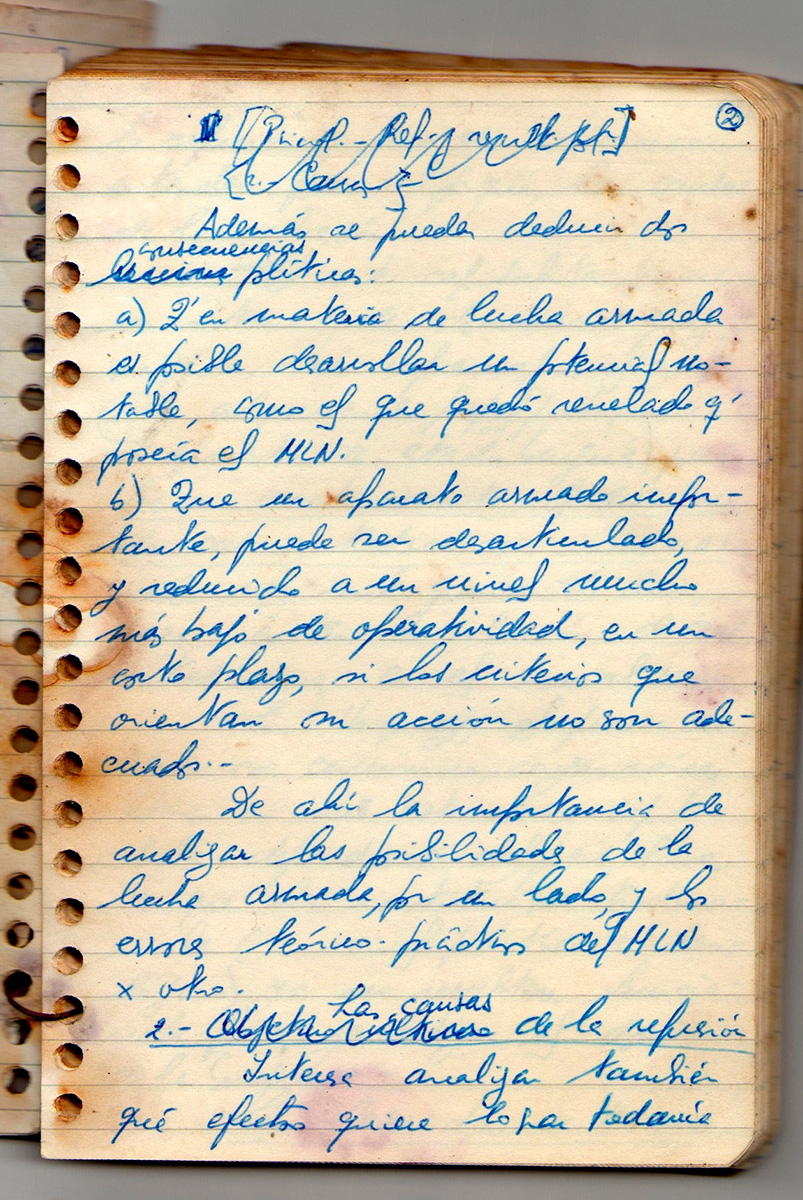 ②
Además se pueden deducir dos
consecuencias
políticas:
a) Q' en materia de lucha armada
es posible desarrollar un potencial no-
table, como el que quedó revelado q'
poseía el MLN.
b) Que un aparato armado impor-
tante, puede ser desarticulado,
y reducido a un nivel mucho
más bajo de operatividad, en un
corto plazo, si los criterios que
orientan su acción no son ade-
cuados.-
De ahí la importancia de
analizar las posibilidades de la
lucha armada, por un lado, y los
errores teórico-prácticos del MLN
x otro.
Las causas
2.- de la represión
Interesa analizar también
qué efectos quiere lograr todavía